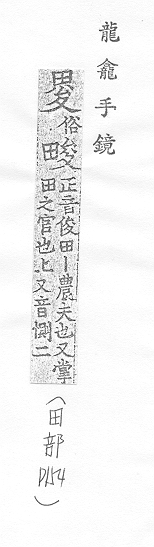 龍龕手鏡
畟俗畯正音俊田丨農夫也又掌
田之官也上又音惻二
(田部
P154)